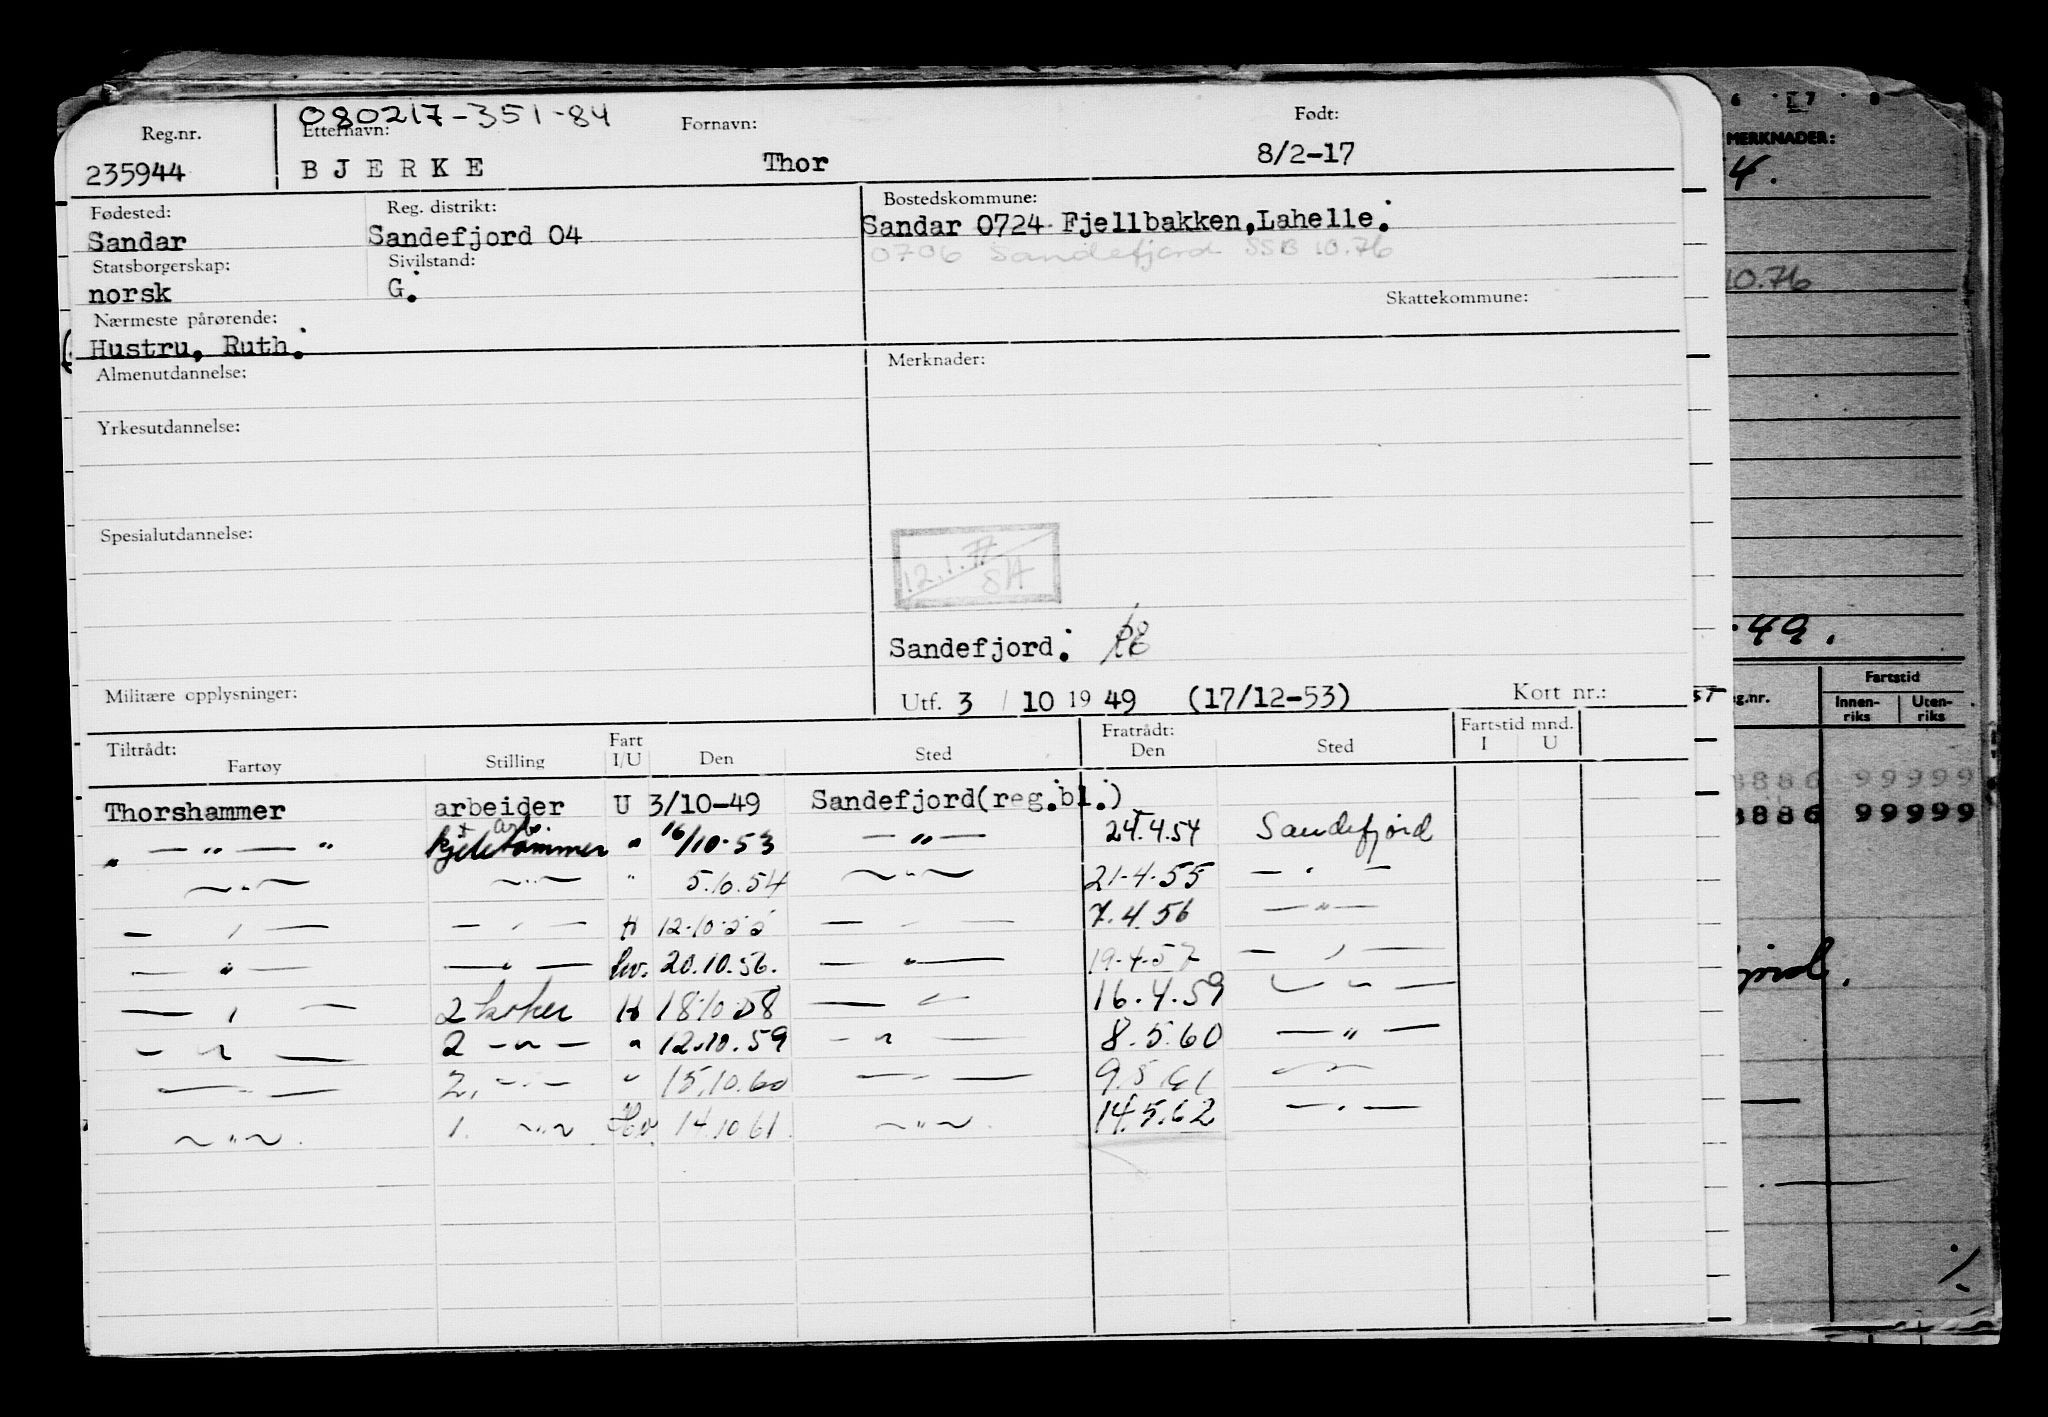 080217-351-84
Reg.nr. Etternavn: Fornavn: Født:
235944 BJERKE Thor 8/2-17
Fødested: Reg. distrikt: Bostedskommune:
Sandar Sandefjord 04 Sandar 0724 Fjellbakken, Lahelle.
0706 Sandefjord SSB 10.76
Statsborgerskap: Sivilstand:
norsk G.
Skattekommune:
Nærmeste pårørende:
Hustru, Ruth.
Almenutdannelse: Merknader:
Yrkesutdannelse:
Spesialutdannelse:
12.1.77
SA
Sandefjord.
Militære opplysninger: Utf. 3 / 10 19 49 (17/12-53) Kort nr.:
Tiltrådt: Fart Fratrådt: Fartstid mnd.
Fartøy Stilling I/U Den Sted Den Sted I U
Thorshammer arbeider U 3/10-49 Sandefjord(reg.bl.)
+ arb.
" — " — " kjelerommer " 16/10-53 — " — 24.4.54 Sandefjord
~ " ~ ~ " ~ " 5.10.54 ~ " ~ 21-4-55 — " —
— " — — " — H 12-10-55 — " — 7.4.56 — " —
— " — — " — hv. 20.10.56. — " — 19-4-57 — " —
— " — 2 koker H 18-10-58 — " — 16.4.59 — " —
— " — 2 — " — " 12.10.59 — " — 8.5.60 — " —
— " — 2. — " — " 15.10.60 — " — 9.5.61 — " —
~ " ~ . 1. ~ " ~ Hv. 14.10 61. ~ " ~ . 14.5.62 — " —
6 17 8
MERKNADER:
4.
10.76
49.
g.nr. Fartstid
Innen-riks Uten-riks
8886 99999
8886 99999
fjord.